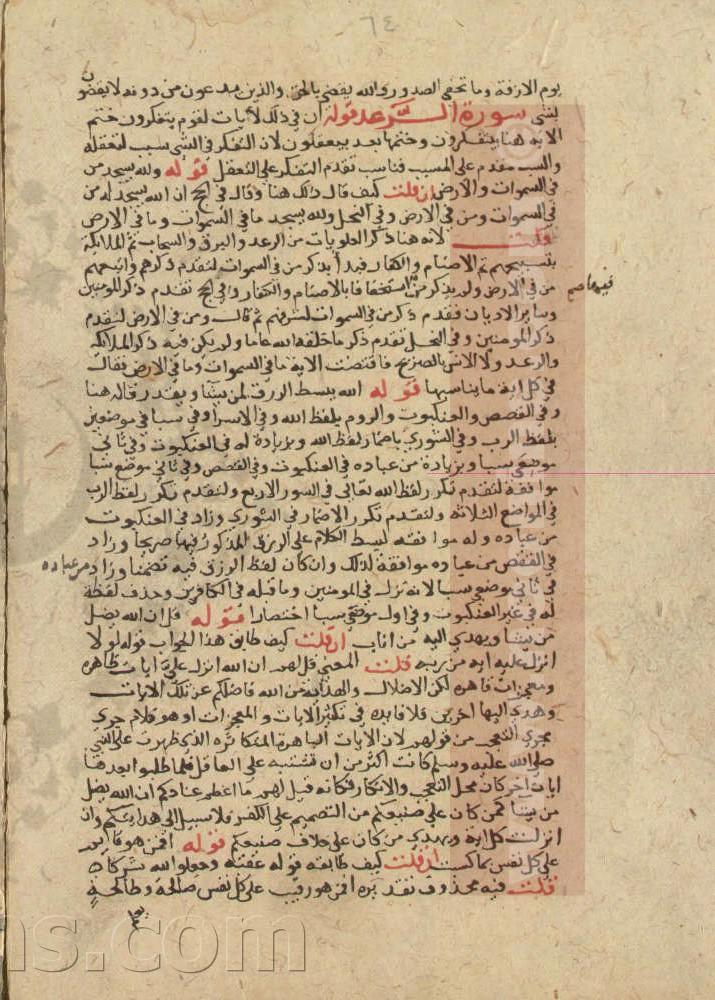 ٦٤
يوم الازفة وما تخفي الصدور والله يقضي بالحق والذين يدعون من دونه لا يقضون
بشي سورة الرعد قوله ان في ذلك لايات لقوم يتفكرون ختم
الاية هنا بيتفكرون وختمها بعد بيعقلون لان التفكر في الشي سبب لتعقله
والسبب مقدم على المسبب فناسب تقدم التفكر على التعقل قوله ولله يسجد من
في السموات والارض ان قلت كيف قال ذلك هنا وقال في الحج ان الله يسجد له من
في السموات ومن في الارض وفي النحل ولله يسجد ما في السموات وما في الارض
قلت لانه هنا ذكر العلويات من الرعد والبرق والسحاب ثم الملائكة
بتسبيحهم ثم الاصنام والكفار فبدا بذكر من في السموات لتقدم ذكرهم واتبعهم
من في الارض ولم يذكر من استخفافا بالاصنام والكفار وفي الحج تقدم ذكر المومنين
فيهما صح
وساير الاديان فقدم ذكر من في السموات لشرفهم ثم قال ومن في الارض لتقدم
ذكر المومنين وفي النحل تقدم ذكر ما خلقه الله عاما ولم يكن فيه ذكر الملائكة
والرعد ولا الانس بالصريح فاقتضت الاية ما في السموات وما في الارض فقال
في كل اية ما يناسبها قوله الله يبسط الرزق لمن يشا ويقدر قاله هنا
وفي القصص والعنكبوت والروم بلفظ الله وفي الاسرا وفي سبا في موضعين
بلفظ الرب وفي الشوري باضمار لفظ الله وبزيادة له في العنكبوت وفي ثاني
موضعي سبا وبزيادة من عباده في العنكبوت وفي القصص وفي ثاني موضعي سبا
موافقة لتقدم تكرر لفظ الله تعالي في السور الاربع ولتقدم تكرر لفظ الرب
في المواضع الثلاثة ولتقدم تكرر الاضمار في الشوري وزاد في العنكبوت
من عباده وله موافقة لبسط الكلام على الرزق المذكور فيها صريحا وزاد
في القصص من عباده موافقة لذلك وان كان لفظ الرزق فيه تضمنا وزاد من عباده
في ثاني موضعي سبا لانه نزل في المومنين وما قبله في الكافرين وحذف لفظة
له في غير العنكبوت وفي اول موضعي سبا اختصارا قوله قل ان الله يضل
من يشا ويهدي اليه من اناب ان قلت كيف طابق هذا الجواب قوله لولا
انزل عليه اية من ربه قلت المعني قل لهم ان الله انزل علي ايات ظاهرة
ومعجزات قاهرة لكن الاضلال والهداية من الله فاضلكم عن تلك الايات
وهدي اليها اخرين فلا فايدة في تكثير الايات والمعجزات او هو كلام جري
مجري التعجب من قولهم لان الايات الباهرة المتكاثرة الذي ظهرت على النبي
صلي الله عليه وسلم كانت اكثر من ان تشتبه على العاقل فلما طلبوا بعدها
ايات اخر كان محل التعجب والانكار فكانه قيل لهم ما اعظم عنادكم ان الله يضل
من يشا كمن كان على صنيعكم من التصميم على الكفر فلا سبيل الي هدايتكم وان
انزلت كل اية ويهدي من كان على خلاف صنيعكم قوله افمن هو قايم
على كل نفس بما كسبت ان قلت كيف طابقه قوله عقبه وجعلوا لله شركاء
قلت فيه محذوف تقديره افمن هو رقيب على كل نفس صالحة وطالحة
ns.com